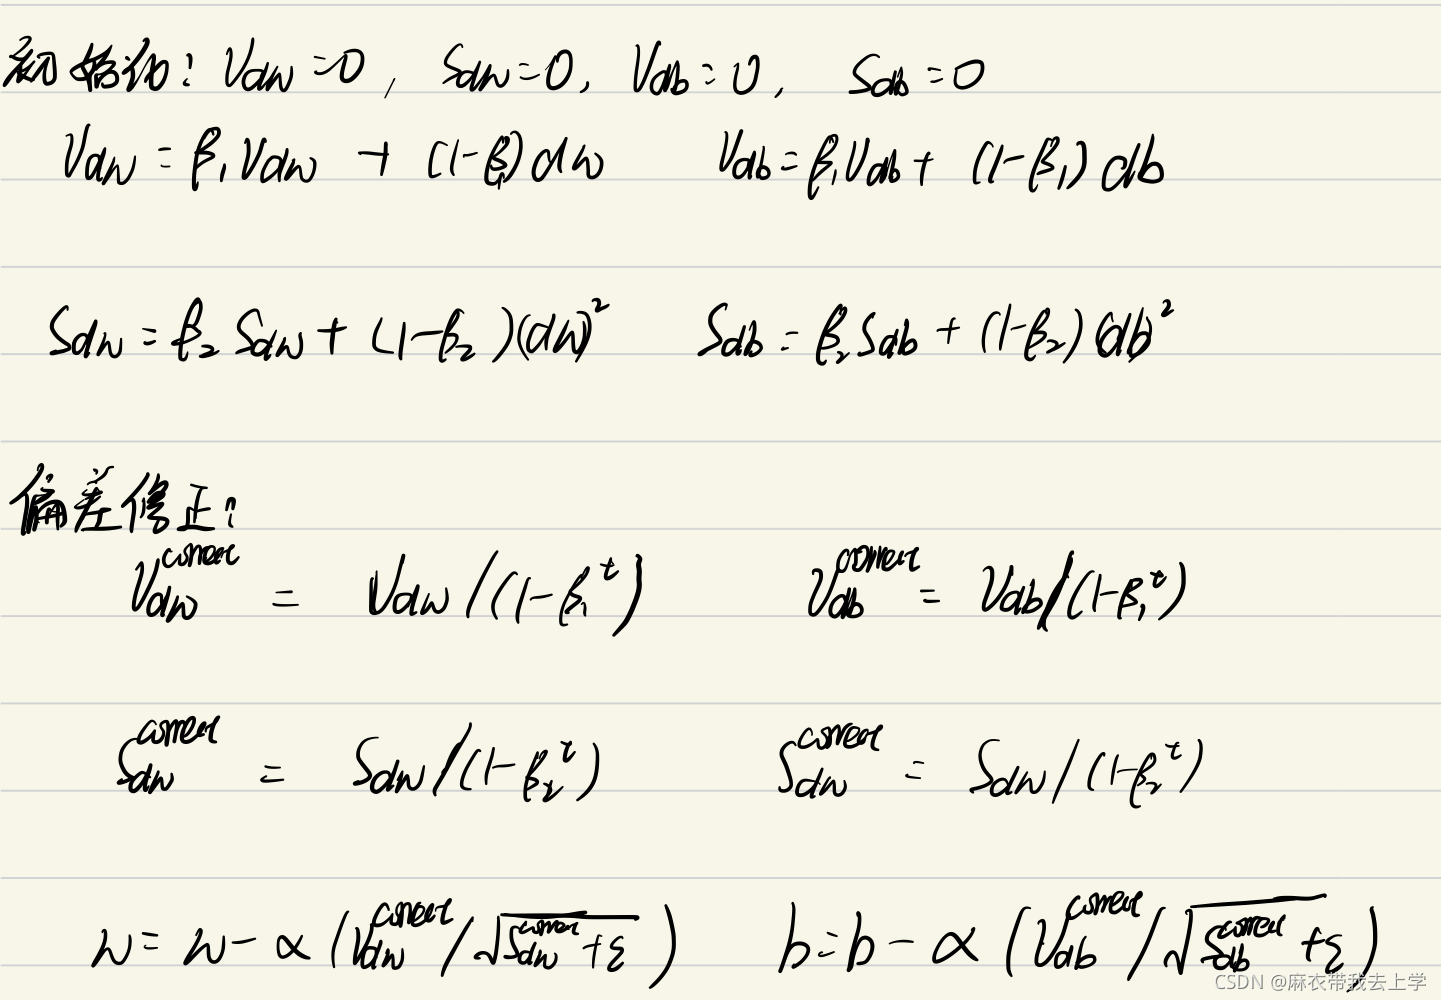 初始化: Vdw=0, Sdw=0, Vdb=0, Sdb=0
Vdw = β₁Vdw + (1-β₁)dw Vdb = β₁Vdb + (1-β₁)db
Sdw = β₂Sdw + (1-β₂)(dw)² Sdb = β₂Sdb + (1-β₂)(db)²
偏差修正:
Vdw^correct = Vdw/(1-β₁^t) Vdb^correct = Vdb/(1-β₁^t)
Sdw^correct = Sdw/(1-β₂^t) Sdw^correct = Sdw/(1-β₂^t)
w = w - α(Vdw^correct/√(Sdw^correct+ε)) b = b - α(Vdb^correct/√(Sdb^correct+ε))
CSDN @麻衣带我去上学